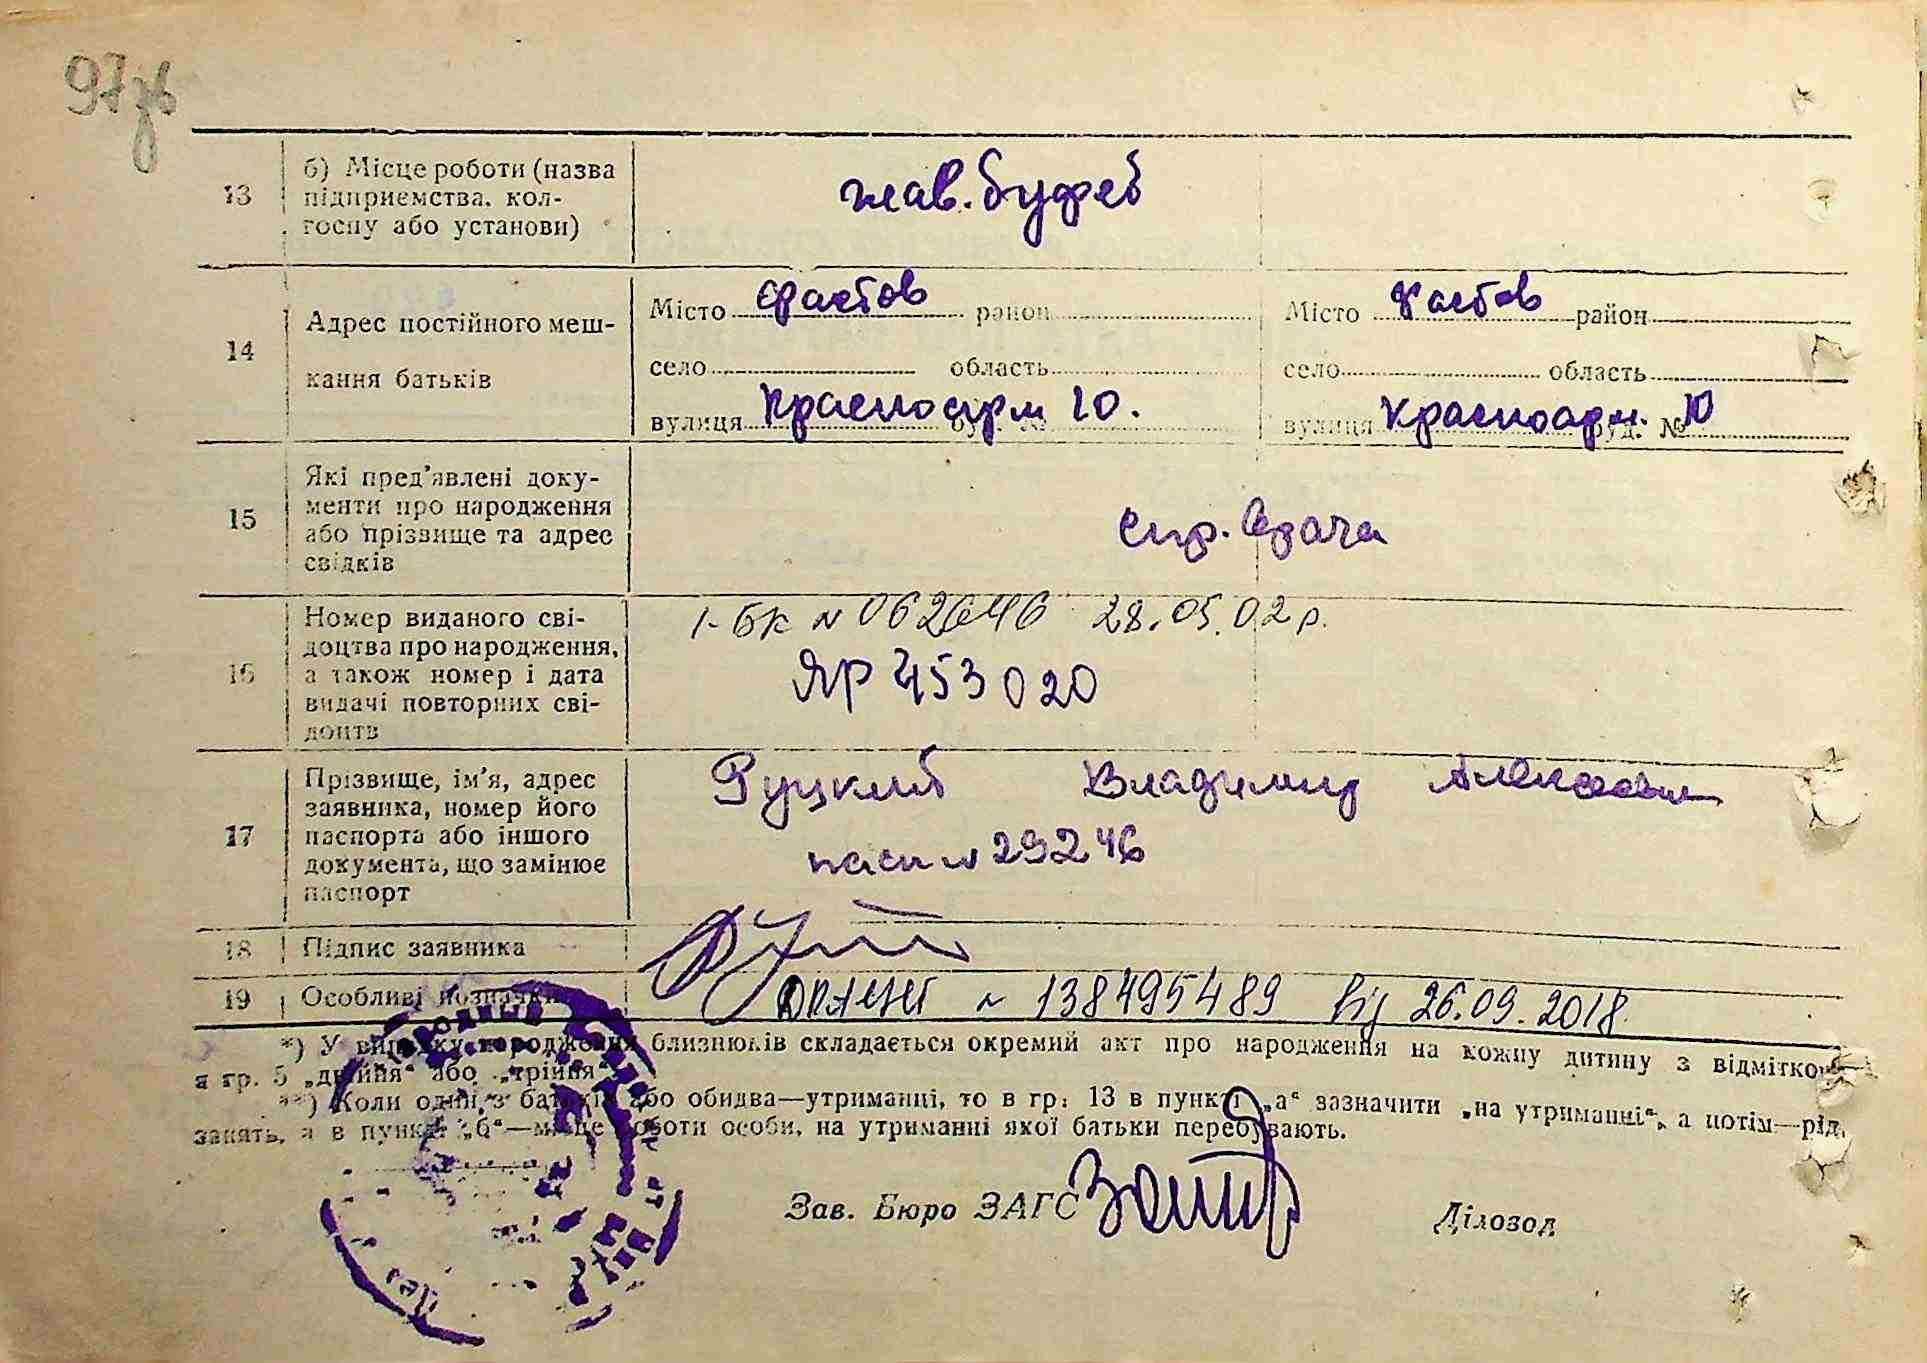 97зв
13 б) Місце роботи (назва
підприємства, кол-
госпу або установи)
зав. буфет
14 Адрес постійного меш-
кання батьків
Місто Фастов район
село область
вулиця Красноарм 10.
Місто Фастов район
село область
вулиця Красноарм. буд. № 10
15 Які пред'явлені доку-
менти про народження
або прізвище та адрес
свідків
спр. врача
16 Номер виданого сві-
доцтва про народження,
а також номер і дата
видачі повторних сві-
доцтв
1-БК № 062646 28.05.02 р.
ЯР 453020
17 Прізвище, ім'я, адрес
заявника, номер його
паспорта або іншого
документа, що замінює
паспорт
Руцкий Владимир Алексеевич
пасп № 29246
18 Підпис заявника
19 Особливі позначки
№ 138495489 від 26.09.2018
*) У випадку народження близнюків складається окремий акт про народження на кожну дитину з відміткою
в гр. 5 „двійня“ або „трійня“.
**) Коли один з батьків або обидва—утриманці, то в гр. 13 в пункті „а“ зазначити „на утриманні“, а потім—рід
занять, а в пункті „б“—місце роботи особи, на утриманні якої батьки перебувають.
Зав. Бюро ЗАГС
Діловод